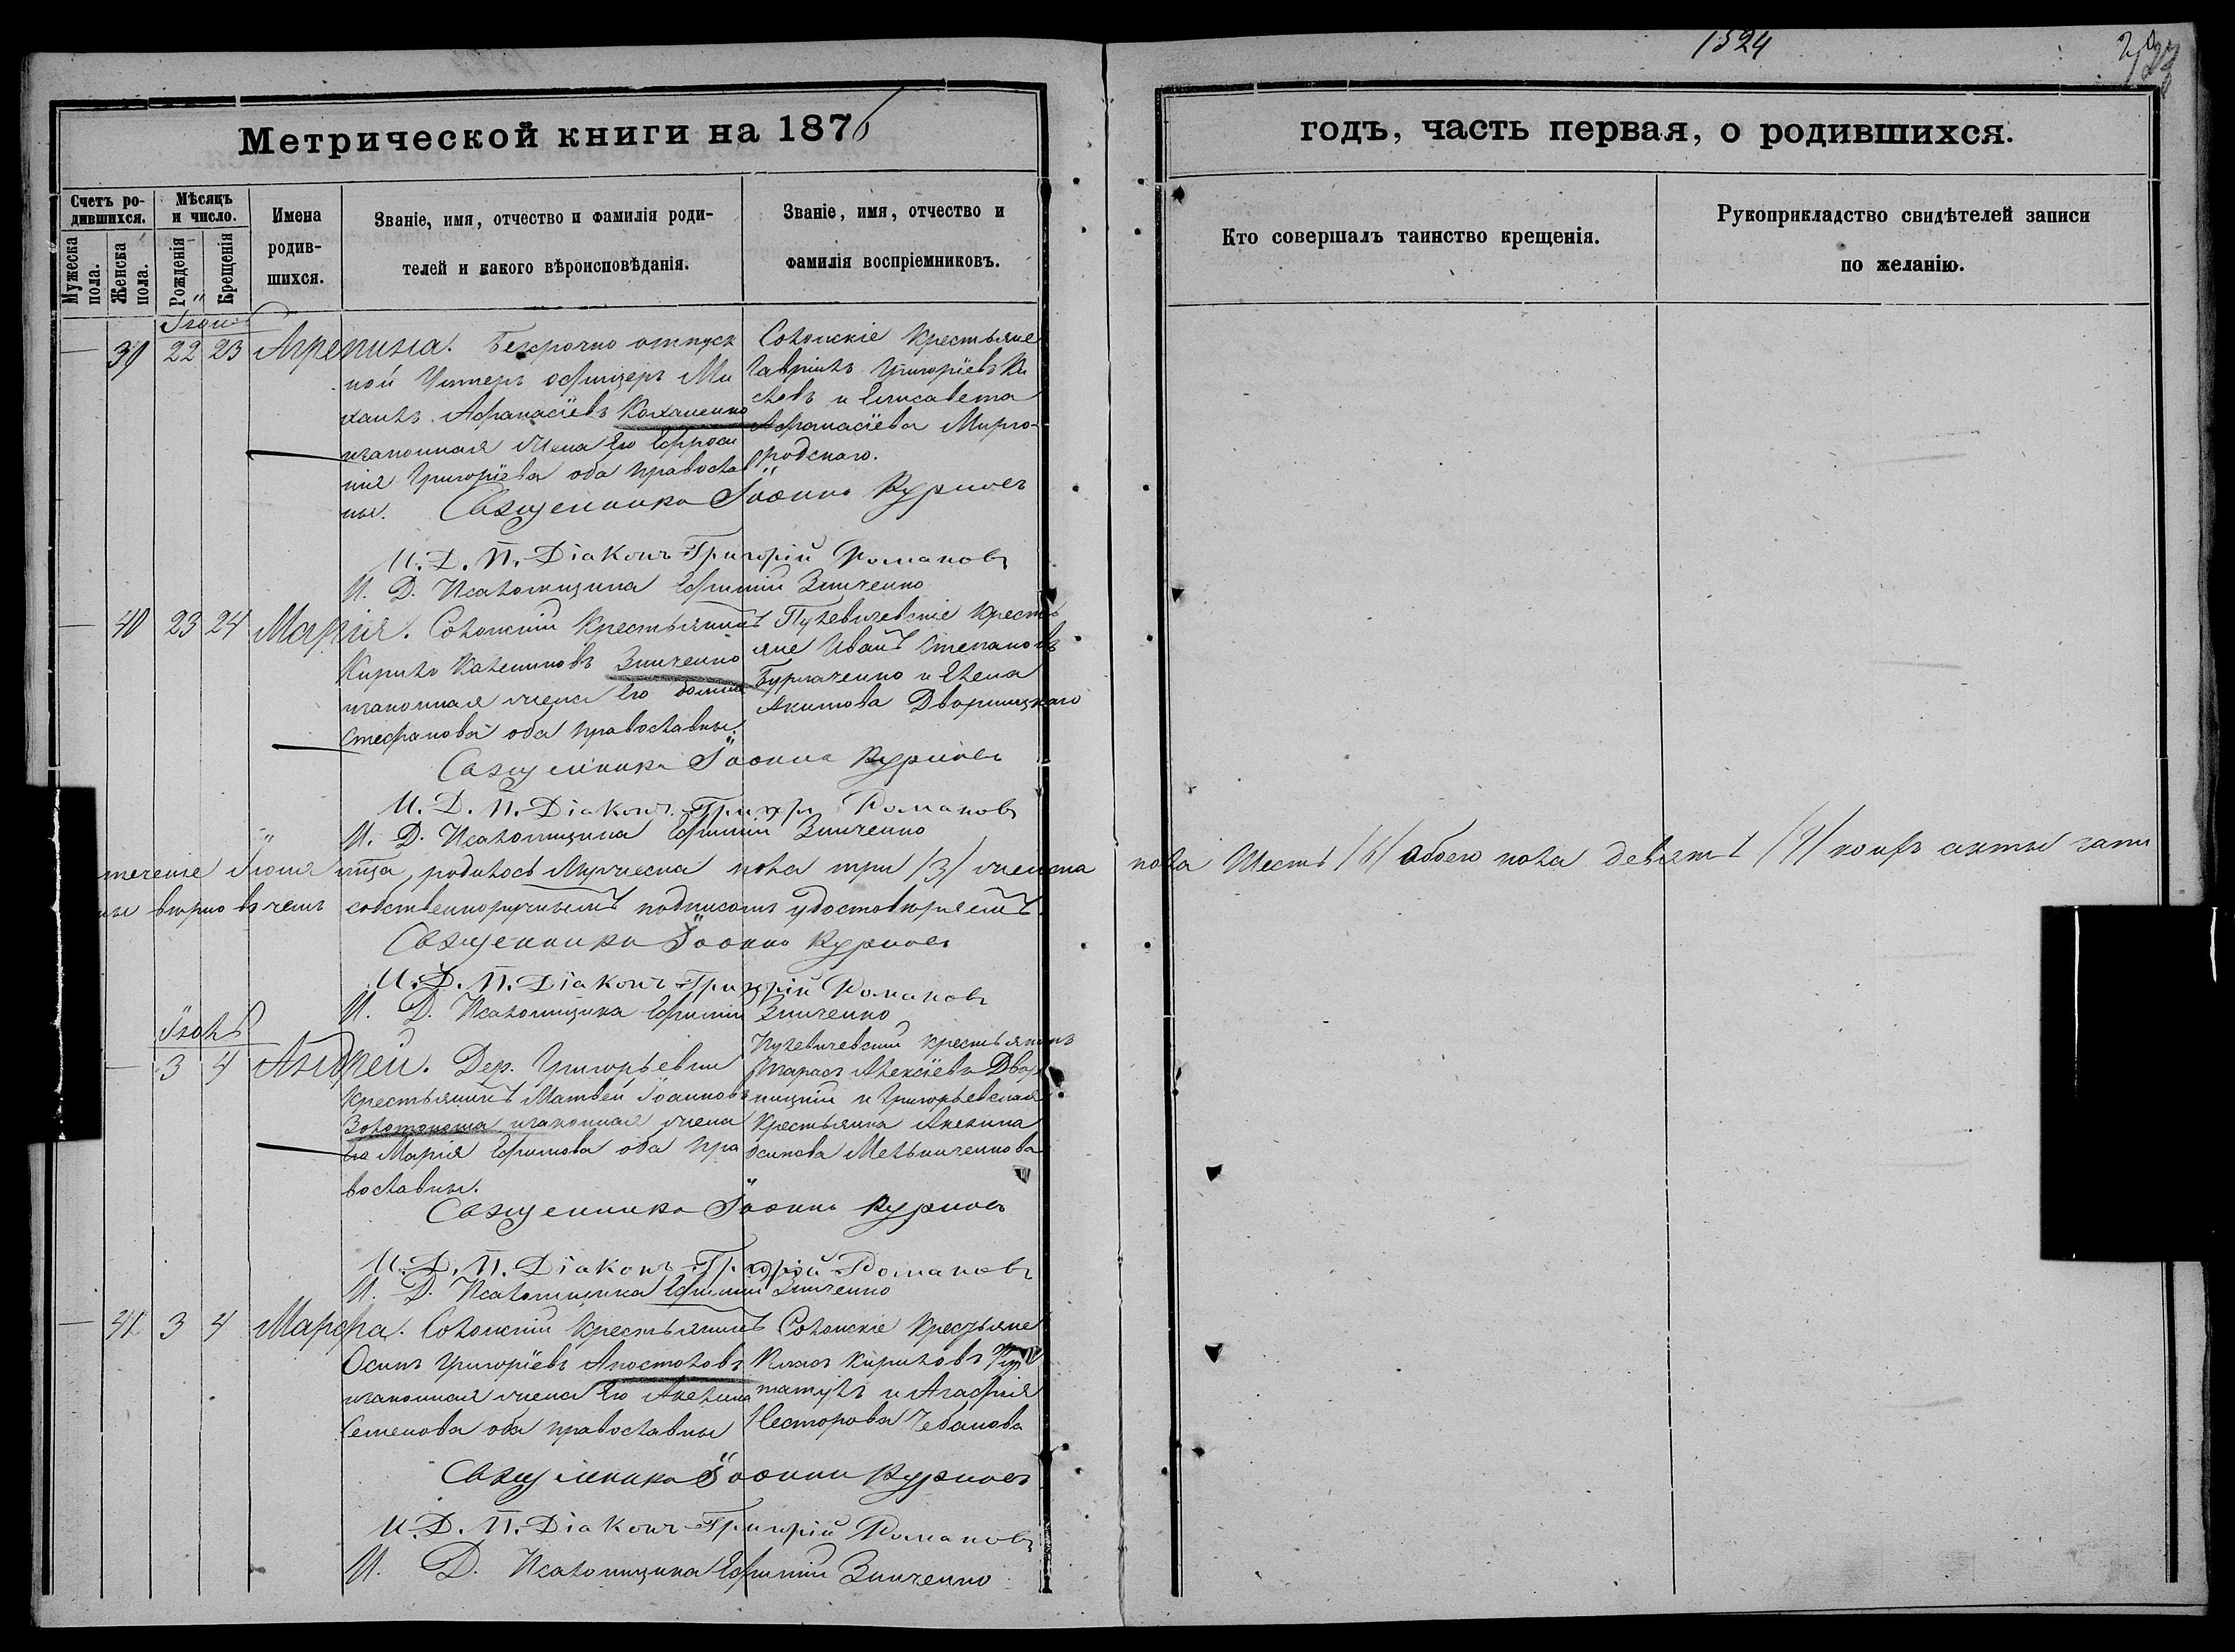 1524
Метрической книги на 1876
годъ, часть первая, о родившихся.
Счетъ родившихся.
Мужеска пола.
Женска пола.
Мѣсяцъ и число.
Рожденія
Крещенія
Имена родив-
шихся.
Званіе, имя, отчество и фамилія роди-
телей и какого вѣроисповѣданія.
Званіе, имя, отчество и
фамилія воспріемниковъ.
Кто совершалъ таинство крещенія.
Рукоприкладство свидѣтелей записи
по желанію.
Іюнь
39 22 23 Агрепина. Безсрочно отпуск
ной Унтеръ офицеръ Ми
хаилъ Афанасіевъ Кохаленко
изаконная жена его Ефроси
нія Григоріева оба православ
ные.
Соколскіе Крестьяне
Гавріилъ Григоріевъ
и Елисавета
Афанасіева Мирго-
родскаго.
Священникъ Іоаннъ Курповъ
И. Д. П. Діаконъ Григорій Романовъ
И. Д. Псаломщика Ефимій Зинченко
40 23 24 Марія. Соколскій Крестьянинъ
Кирило Калениковъ Зинченко
изаконная жена его Домна
Стефанова оба православны.
Пулевичевскіе кресть
яне Иванъ Степановъ
Бурлаченко и Елена
Акимова Дворницкаго
Священникъ Іоаннъ Курповъ
И. Д. П. Діаконъ Григорій Романовъ
И. Д. Псаломщика Ефимій Зинченко
теченіе Іюня м-ца, родилось Мужеска пола три /3/ женска пола Шесть /6/ обоего пола девять /9/ коихъ акты запи
ны вѣрно въ чемъ собственноручнымъ подписомъ удостовѣряемъ
Священникъ Іоаннъ Курповъ
И. Д. П. Діаконъ Григорій Романовъ
И. Д. Псаломщика Ефимій Зинченко
Іюль
3 4 Андрей. Дер. Григорьевки
Крестьянинъ Матвей Іоанновъ
Золотоноша изаконная жена
его Марія Ефимова оба пра
вославны.
Пулевичевскій крестьянинъ
Тарасъ Алексіевъ Двор
ницкій и Григорьевская
Крестьянка Акелина
Осипова Мельниченкова
Священникъ Іоаннъ Курповъ
И. Д. П. Діаконъ Григорій Романовъ
И. Д. Псаломщика Ефимій Зинченко
41 3 4 Марфа. Соколскій Крестьянинъ
Осипъ Григоріевъ Апостоловъ
изаконная жена его Акелина
Семенова оба православны
Соколскіе Крестьяне
Власъ Кириловъ
и Агафія
Несторова Чебанова
Священникъ Іоаннъ Курповъ
И. Д. П. Діаконъ Григорій Романовъ
И. Д. Псаломщика Ефимій Зинченко